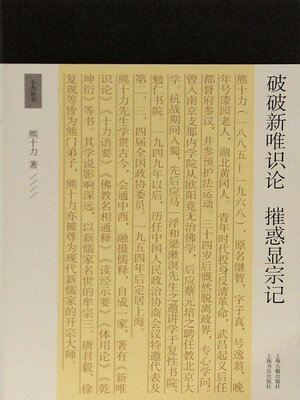 破破新唯识论 摧惑显宗记
上海古籍出版社
上海书店出版社
熊十力(一八八五—一九六八),原名继智,字子真,号逸翁,晚
年号漆园老人,湖北黄冈人。青年时代投身反清革命,武昌起义后任
都督府参议,并参预护法运动。三十四岁后慨然脱离政界,专心学问。
曾入南京支那内学院从欧阳竟无治佛学,后应蔡元培之聘任教北京大
学。抗战期间入蜀,先后应马一浮和梁漱溟先生之邀讲学于复性书院、
勉仁书院。一九四九年以后,历任中国人民政治协商会议特邀代表及
第二、三、四届全国政协委员。一九五四年后定居上海。
熊十力先生学贯古今,会通中西,融摄儒释,自成一家,著有《新唯
识论》《十力语要》《佛教名相通释》《读经示要》《体用论》《乾
坤衍》等书。其学说影响深远,以新儒家名世的牟宗三、唐君毅、徐
复观等皆为熊门弟子,熊十力亦被尊为现代新儒家的开宗大师
十力丛书
熊十力 著